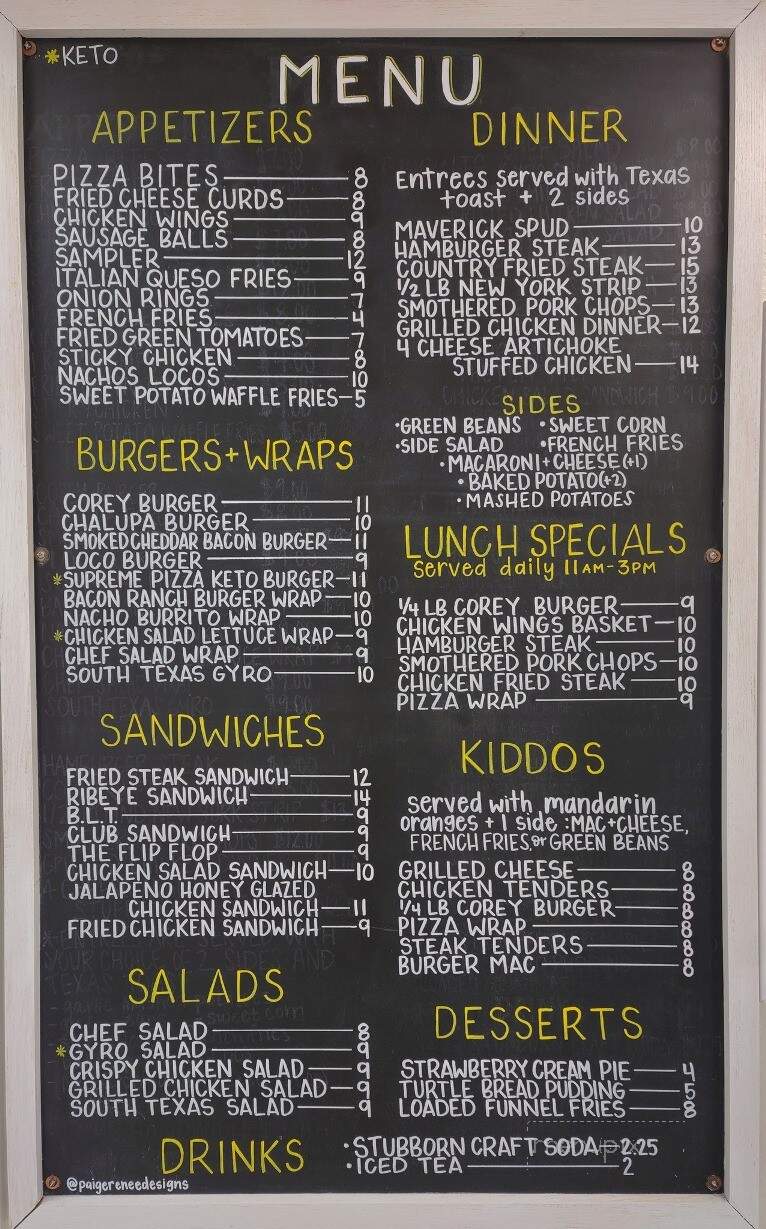 *KETO
MENU
APPETIZERS
PIZZA BITES 8
FRIED CHEESE CURDS 8
CHICKEN WINGS 9
SAUSAGE BALLS 8
SAMPLER 12
ITALIAN QUESO FRIES 9
ONION RINGS 7
FRENCH FRIES 4
FRIED GREEN TOMATOES 7
STICKY CHICKEN 8
NACHOS LOCOS 10
SWEET POTATO WAFFLE FRIES 5
BURGERS + WRAPS
COREY BURGER 11
CHALUPA BURGER 10
SMOKED CHEDDAR BACON BURGER 11
LOCO BURGER 9
*SUPREME PIZZA KETO BURGER 11
BACON RANCH BURGER WRAP 10
NACHO BURRITO WRAP 10
*CHICKEN SALAD LETTUCE WRAP 9
CHEF SALAD WRAP 9
SOUTH TEXAS GYRO 10
SANDWICHES
FRIED STEAK SANDWICH 12
RIBEYE SANDWICH 14
B.L.T. 9
CLUB SANDWICH 9
THE FLIP FLOP 9
CHICKEN SALAD SANDWICH 10
JALAPENO HONEY GLAZED
CHICKEN SANDWICH 11
FRIED CHICKEN SANDWICH 9
SALADS
CHEF SALAD 8
*GYRO SALAD 9
CRISPY CHICKEN SALAD 9
GRILLED CHICKEN SALAD 9
SOUTH TEXAS SALAD 9
DINNER
Entrees served with Texas
toast + 2 sides
MAVERICK SPUD 10
HAMBURGER STEAK 13
COUNTRY FRIED STEAK 15
1/2 LB NEW YORK STRIP 13
SMOTHERED PORK CHOPS 13
GRILLED CHICKEN DINNER 12
4 CHEESE ARTICHOKE
STUFFED CHICKEN 14
SIDES
•GREEN BEANS •SWEET CORN
•SIDE SALAD •FRENCH FRIES
•MACARONI + CHEESE (+1)
•BAKED POTATO (+2)
•MASHED POTATOES
LUNCH SPECIALS
served daily 11AM-3PM
1/4 LB COREY BURGER 9
CHICKEN WINGS BASKET 10
HAMBURGER STEAK 10
SMOTHERED PORK CHOPS 10
CHICKEN FRIED STEAK 10
PIZZA WRAP 9
KIDDOS
served with mandarin
oranges + 1 side : MAC + CHEESE,
FRENCH FRIES, or GREEN BEANS
GRILLED CHEESE 8
CHICKEN TENDERS 8
1/4 LB COREY BURGER 8
PIZZA WRAP 8
STEAK TENDERS 8
BURGER MAC 8
DESSERTS
STRAWBERRY CREAM PIE 4
TURTLE BREAD PUDDING 5
LOADED FUNNEL FRIES 8
DRINKS
•STUBBORN CRAFT SODA 2.25
•ICED TEA 2
@paigereneedesigns